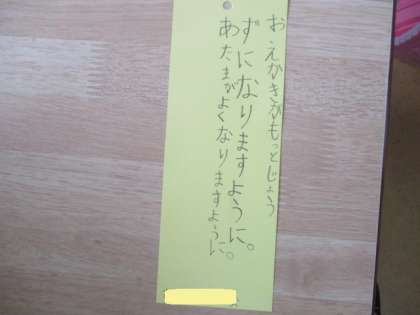 おえかきがもっとじょう
ずになりますように。
あたまがよくなりますように。